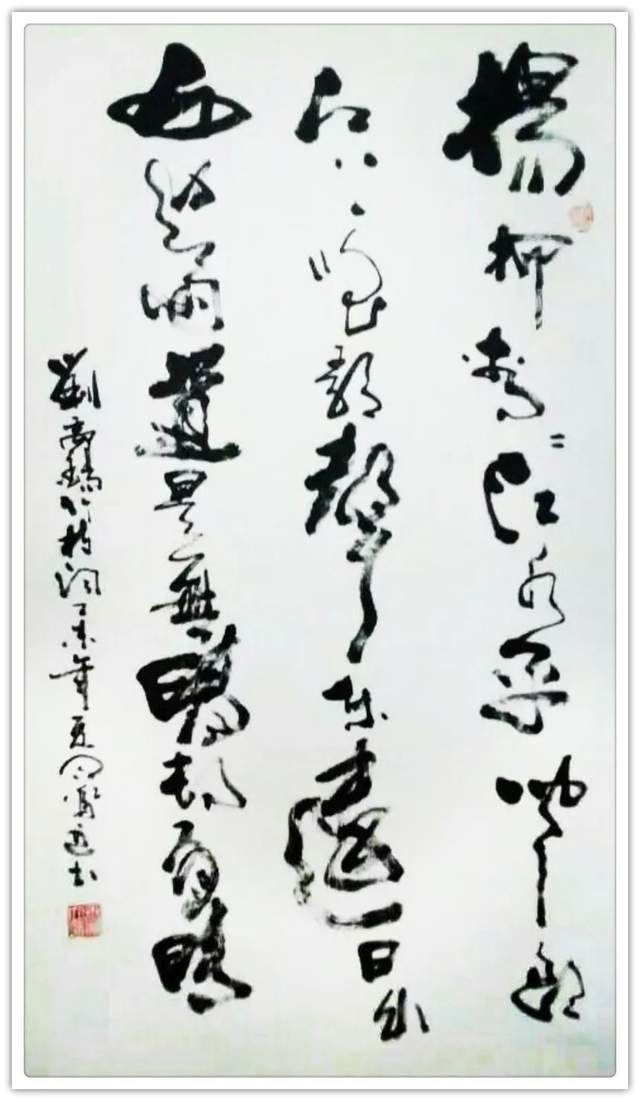 楊柳青々江水平聞郎
江上唱歌聲東邊日出
西邊雨道是無晴却有晴
劉禹錫竹枝詞乙未年夏書